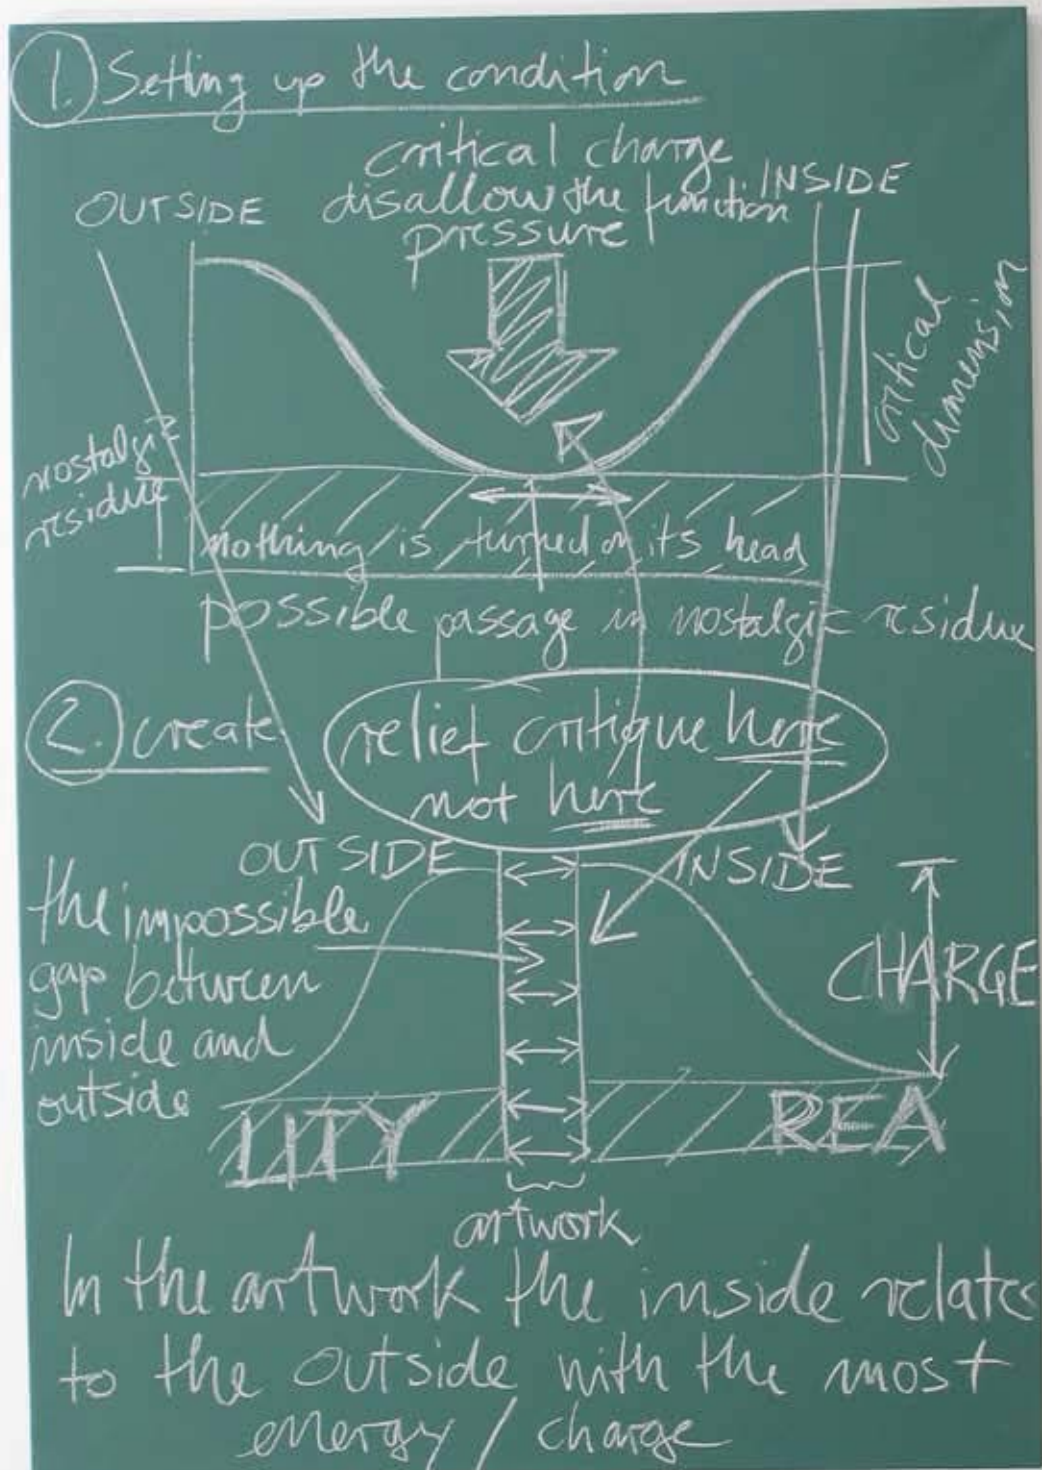 1. Setting up the condition
critical charge
disallow the function
pressure
OUTSIDE
INSIDE
critical
dimension
nostalgic
residue
nothing is turned on its head
possible passage in nostalgic residue
2. create
relief critique here
not here
OUTSIDE
INSIDE
the impossible
gap between
inside and
outside
CHARGE
LITY
REA
artwork
In the artwork the inside relates
to the outside with the most
energy / charge